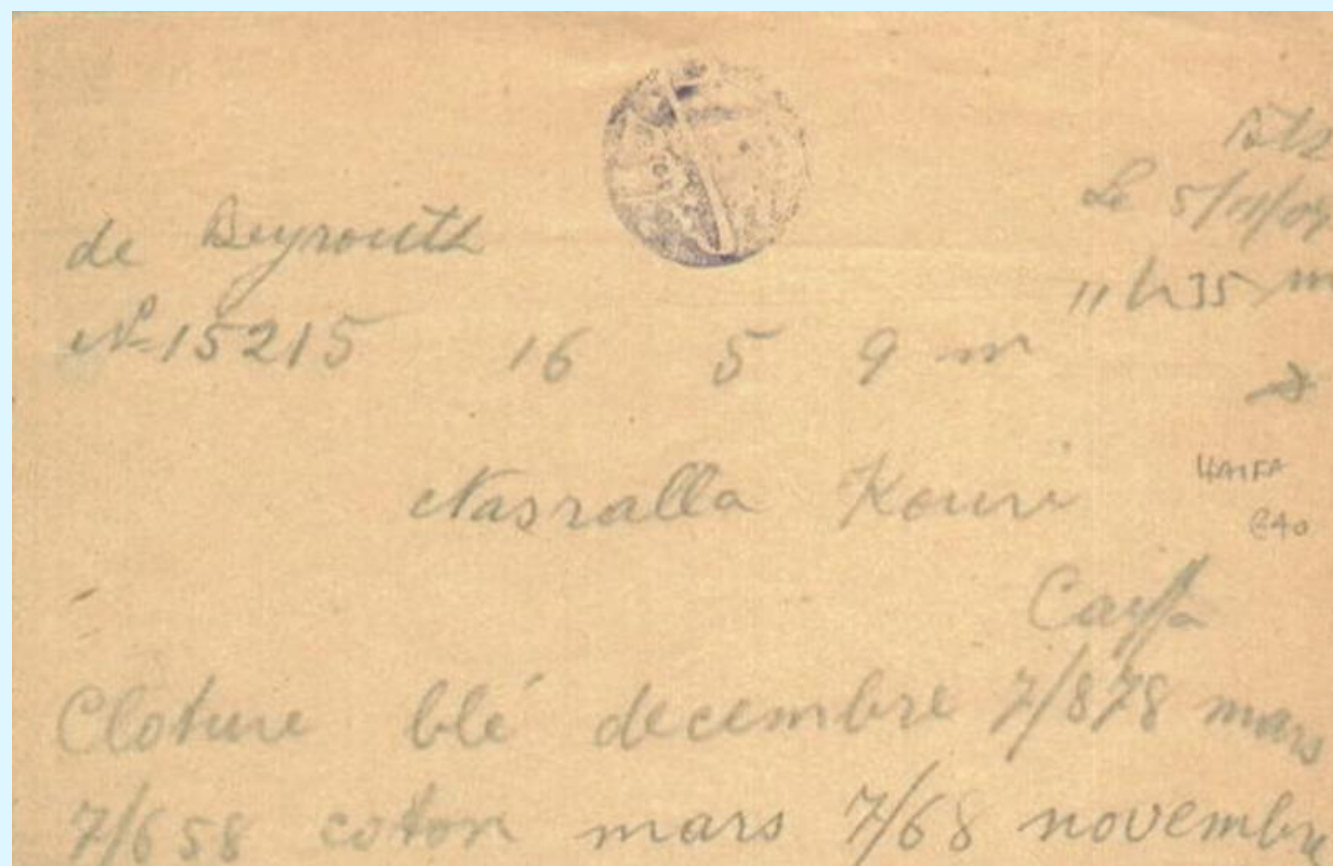 de Beyrouth
Le 5/11/07
11 h 35 m
N 15215 16 5 9 m
Nasralla Kouri
HAIFA
Cayfa
Cloture blé decembre 7/878 mars
7/658 coton mars 7/68 novembre